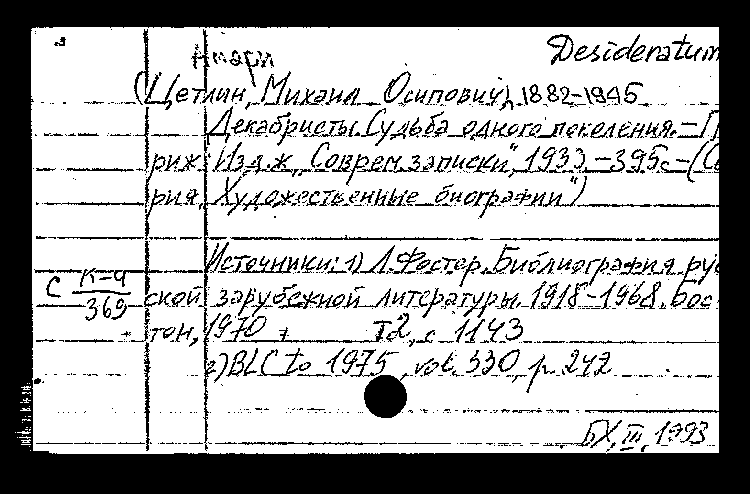 Амари Desideratum
(Цетлин, Михаил Осипович), 1882-1945
Декабристы. Судьба одного поколения. – П
риж: Изд. ж. „Соврем. записки", 1933. – 395с – (Се
рия „Художественные биографии")
Источники: 1) Л. Фостер. Библиография рус
С К-4
369
ской зарубежной литературы. 1918-1968. Бос
тон, 1970 Т2, с 1143
2) BLC to 1975, vol. 330, p. 242
БХ, III, 1993